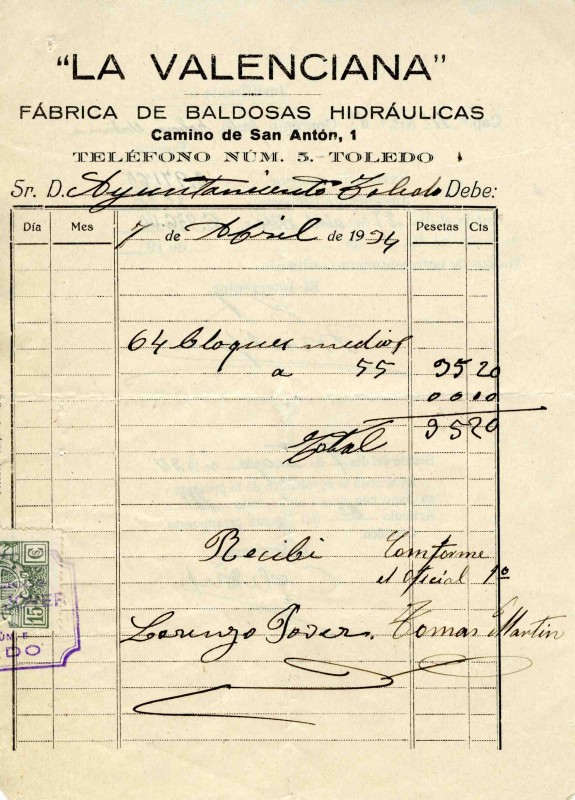 "LA VALENCIANA"
FÁBRICA DE BALDOSAS HIDRÁULICAS
Camino de San Antón, 1
TELÉFONO NÚM. 5.-TOLEDO
Sr. D. Ayuntamiento Toledo Debe:
Día Mes 7 de Abril de 1934 Pesetas Cts
64 bloques medios
a 55 35 20
0 0 10
Total 35 20
Recibi Comforme
el oficial 1º
Lorenzo Tomas Martin
15 C
NÚM. 5
DO